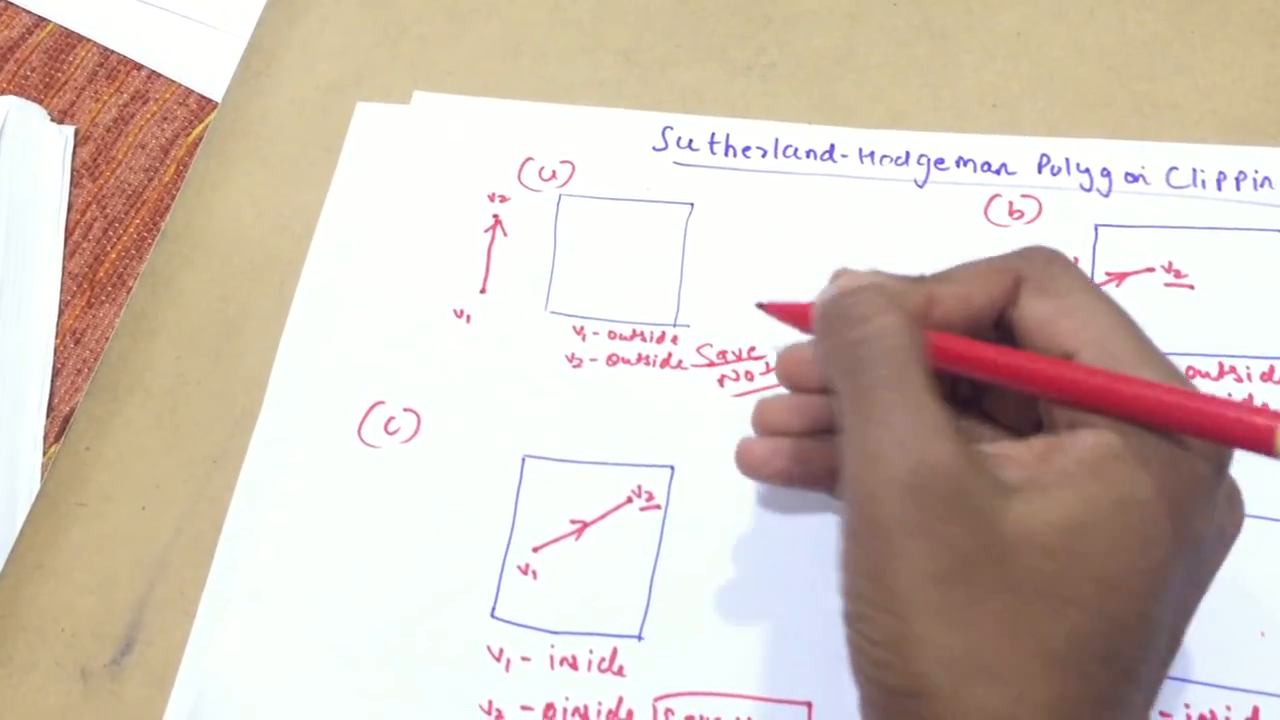 Sutherland-Hodgeman Polygon Clippin
(a)
v2
v1
v1 - outside
v2 - outside Save
No
(b)
v2
outside
(c)
v2
v1
v1 - inside
v2 -